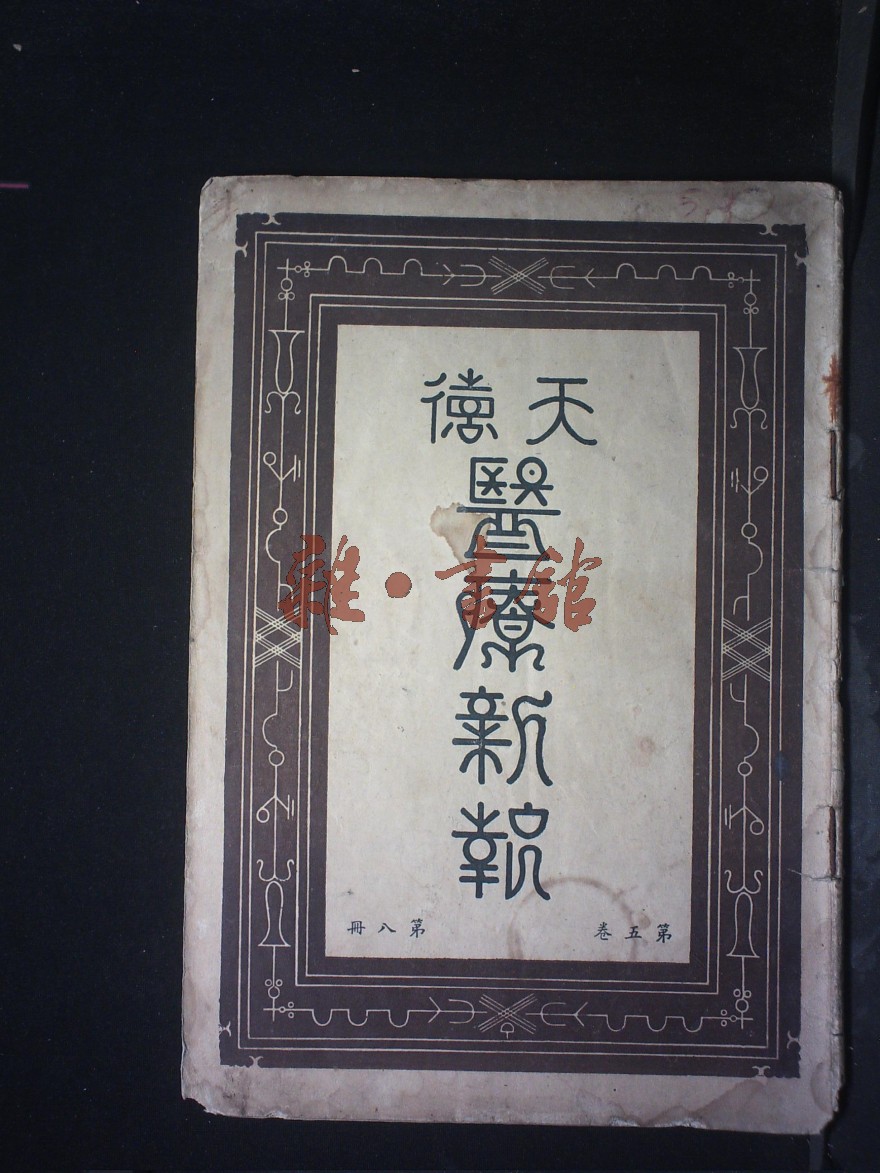 天德
醫療新報
第五卷
第八冊
雜·書館